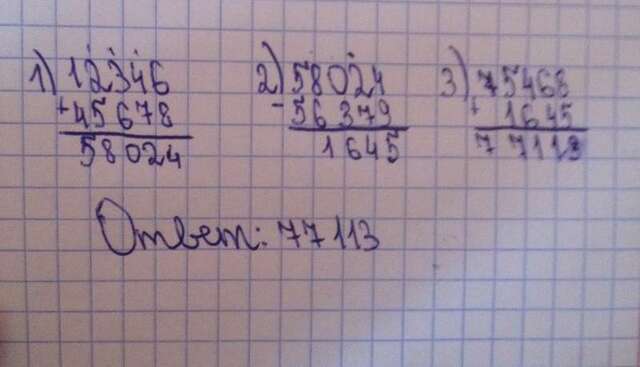 1) 12346 2) 58024 3) 75468
+ 45678 - 56379 + 1645
58024 1645 77113
Ответ: 77113